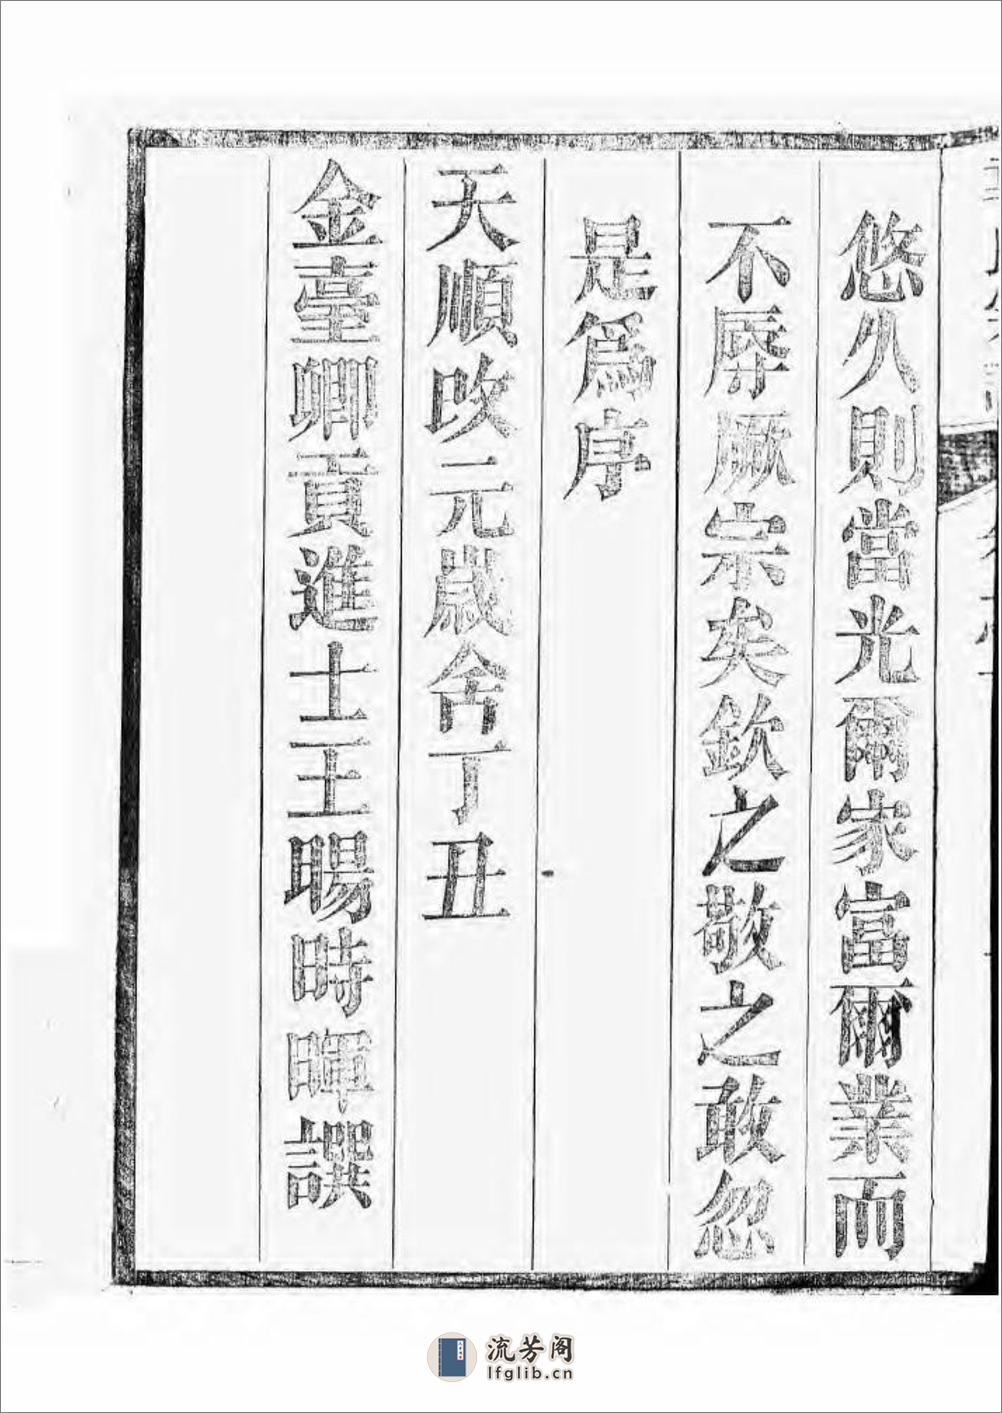 悠久則當光爾家富爾業而
不辱厥宗矣欽之敬之敢忽
是爲序
天順改元歲舍丁丑
金臺鄉貢進士王暘時暉譔
流芳阁
lfglib.cn